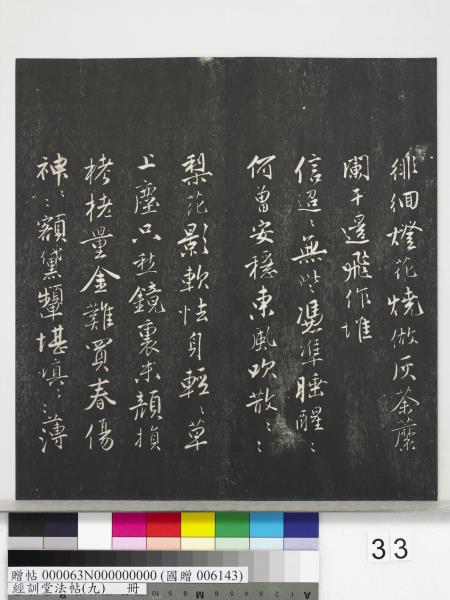 徘徊燈花燒做灰荼蘼
闌干邊飛作堆
信迢〻無些憑準睡醒〻
何曾安穩東風吹散〻〻
梨花影軟怯身輕〻草
上塵只愁鏡裏朱顏損
栲栳量金難買春傷
神〻額黛顰堪慎〻薄
33
贈帖 000063N000000000 (國贈 006143)
經訓堂法帖(九) 冊